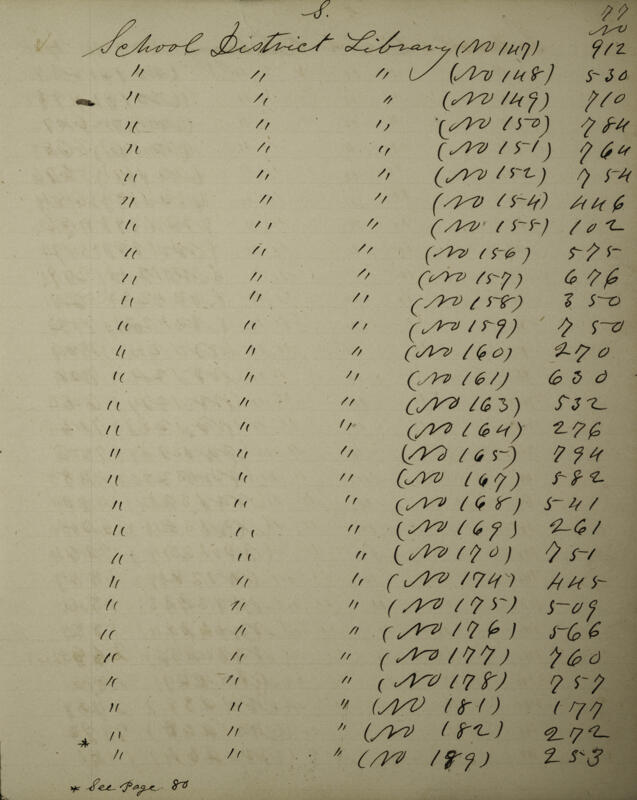 S.
77
No
School District Library (No 147) 912
" " " (No 148) 530
" " " (No 149) 710
" " " (No 150) 784
" " " (No 151) 764
" " " (No 152) 754
" " " (No 154) 446
" " " (No 155) 102
" " " (No 156) 575
" " " (No 157) 676
" " " (No 158) 350
" " " (No 159) 750
" " " (No 160) 270
" " " (No 161) 630
" " " (No 163) 532
" " " (No 164) 276
" " " (No 165) 794
" " " (No 167) 582
" " " (No 168) 541
" " " (No 169) 261
" " " (No 170) 751
" " " (No 174) 445
" " " (No 175) 509
" " " (No 176) 566
" " " (No 177) 760
" " " (No 178) 757
" " " (No 181) 177
* " " " (No 182) 272
" " " (No 189) 253
* See Page 80